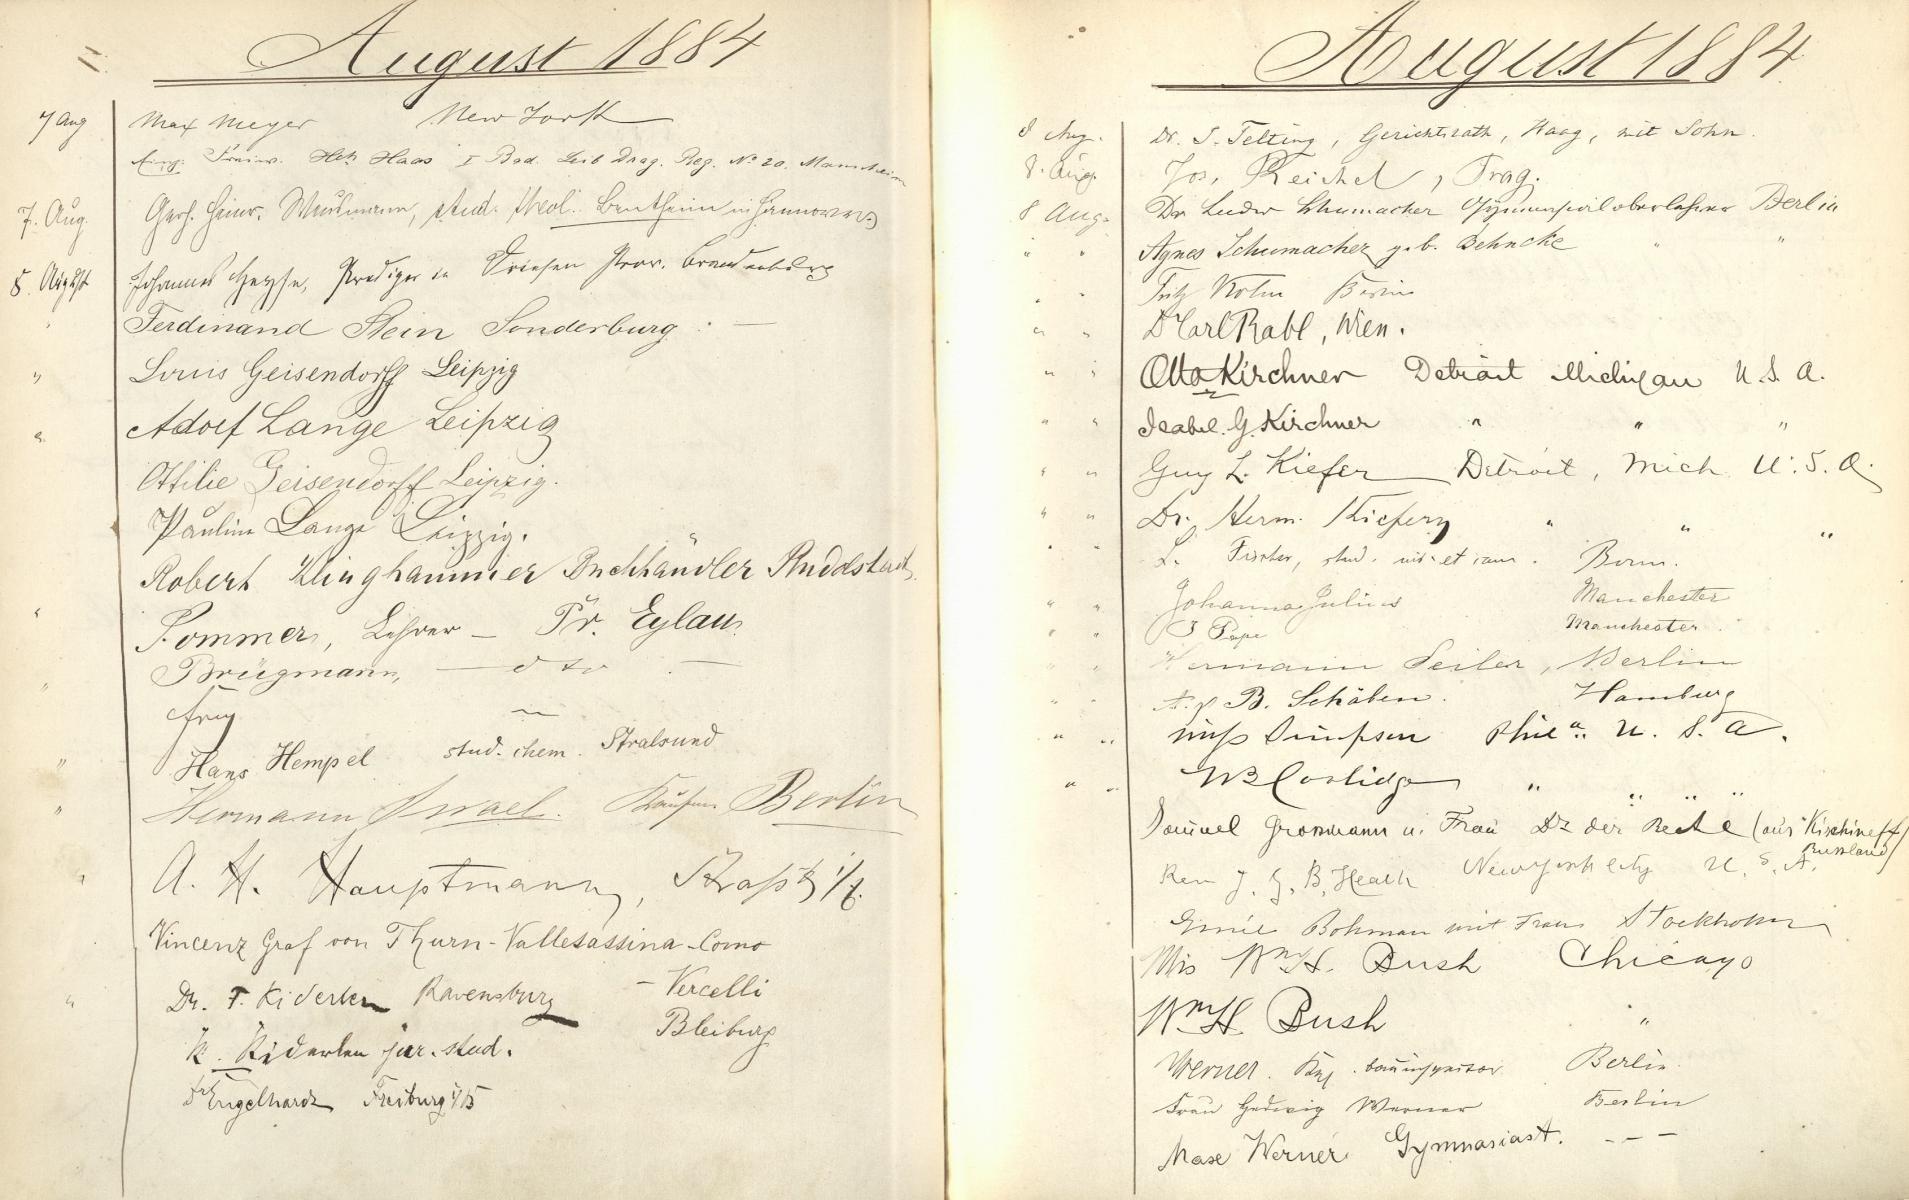 August 1884
7 Aug Max Meyer New York
Einj. Freiw. Hch Haas I Bad. Leib Drag. Reg. No 20. Mannheim
7. Aug. Gerh. Heinr. stud. theol. Bentheim in Hannover
8. August Johannes Heyse, Prediger in Driesen Prov. Brandenburg
" Ferdinand Stein Sonderburg. —
" Louis Geisendorff Leipzig
" Adolf Lange Leipzig
Ottilie Geisendorff Leipzig.
Pauline Lange Leipzig.
Robert Klinghammer Buchhändler Rudolstadt.
" Sommer, Lehrer — Pr. Eylau
Brügmann, — dto —
" Frey ~
" Hans Hempel stud. chem. Stralsund
" Hermann Israel. Kaufm. Berlin
" A. H. Hauptmann,
Vincenz Graf von Thurn-Vallesassina-Como
– Vercelli
" Dr. F. Kiderlen Ravensburg
Bleiburg
K. Kiderlen jur. stud.
Dr Engelhardt Freiburg i/B
August 1884
8 Aug. Dr. J. Telting, Gerichtsrath, Haag, mit Sohn.
8. Aug. Jos. Reichel, Prag.
8 Aug. Dr. Schumacher Gymnasialoberlehrer Berlin
" " Agnes Schumacher geb. Behncke " "
" " Fritz Berlin
" " Dr Carl Rabl, Wien.
" " Otto Kirchner Detroit Michigan U. S. A.
" " Isabel. G. Kirchner " " "
" " Guy L. Kiefer Detroit, Mich U. S. A.
" " Dr. Herm. Kiefer " " "
" " L. Fischer, stud. Bonn.
" " Johanna Julius Manchester
" " J Pape Manchester
" " Hermann Seiler, Berlin
" " B. Schäben. Hamburg
" " Miss Simpson Phila. U. S. A.
" " W B Coolidge " " " "
Samuel Grossmann u. Frau Dr der Rechte (aus Kischineff
Russland)
Rev J. G. B. Heath New York City U. S. A.
Emil Bohman mit Frau Stockholm
Mis Wm H. Bush Chicago
Wm H Bush "
Werner. Kgl. Bauinspector Berlin
Frau Hedwig Werner Berlin
Max Werner Gymnasiast. – – –